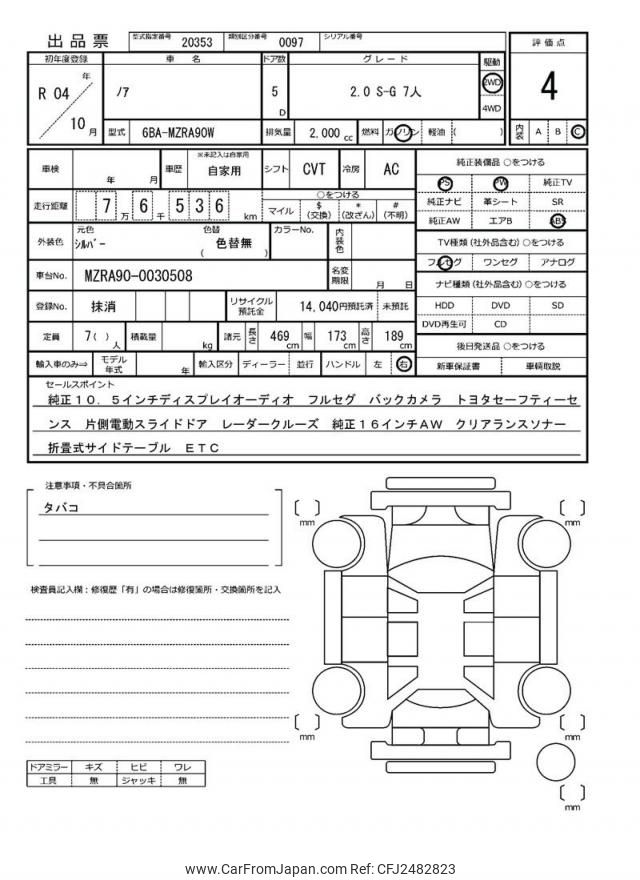 出品票 型式指定番号 20353 類別区分番号 0097 シリアル番号
初年度登録 車名 ドア数 グレード 駆動 評価点
R 04 年 10 月 ﾉｱ 5 D 2.0 S-G 7人 2WD 4WD 4
型式 6BA-MZRA90W 排気量 2,000 cc 燃料 ガソリン 軽油 ( ) 内装 A B C
車検 年 月 車歴 ※未記入は自家用 自家用 シフト CVT 冷房 AC 純正装備品 ○をつける
PS PW 純正TV
走行距離 7 万 6 千 5 3 6 km ○をつける マイル $ (交換) * (改ざん) # (不明) 純正ナビ 革シート SR
純正AW エアB ABS
外装色 元色 ｼﾙﾊﾞｰ 色替 ( 色替無 ) カラーNo. 内装色 TV種類 (社外品含む) ○をつける
フルセグ ワンセグ アナログ
車台No. MZRA90-0030508 名変期限 月 日 ナビ種類 (社外品含む) ○をつける
登録No. 抹消 リサイクル預託金 14,040円預託済 未預託 HDD DVD SD
DVD再生可 CD
定員 7( ) 人 積載量 kg 諸元 長さ 469 cm 幅 173 cm 高さ 189 cm 後日発送品 ○をつける
輸入車のみ⇒ モデル年式 年 輸入区分 ディーラー 並行 ハンドル 左 右 新車保証書 車輌取説
セールスポイント
純正１０．５インチディスプレイオーディオ　フルセグ　バックカメラ　トヨタセーフティーセ
ンス　片側電動スライドドア　レーダークルーズ　純正１６インチAW　クリアランスソナー
折畳式サイドテーブル　ＥＴＣ
注意事項・不具合箇所
タバコ
mm
mm
検査員記入欄：修復歴「有」の場合は修復箇所・交換箇所を記入
mm
mm
ドアミラー キズ ヒビ ワレ
工具 無 ジャッキ 無
mm
www.CarFromJapan.com Ref: CFJ2482823